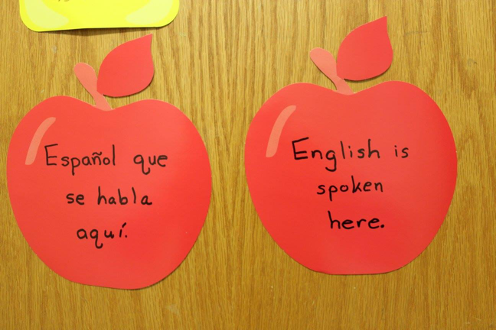 Español que
se habla
aquí.
English is
spoken
here.